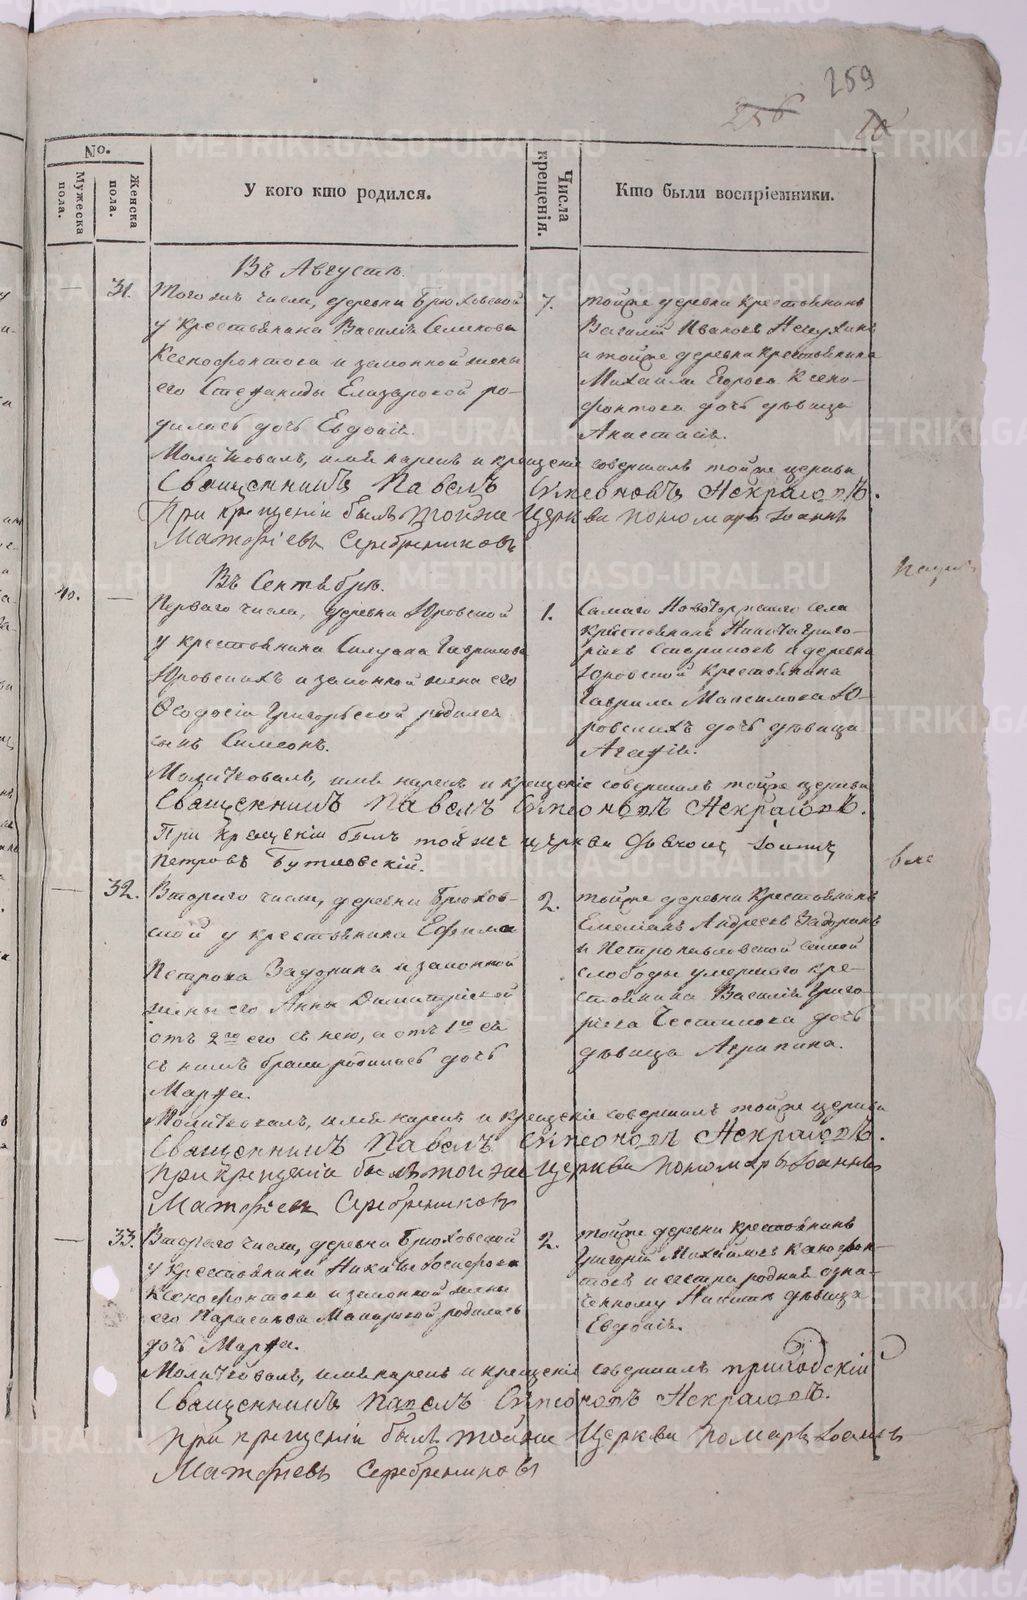 259
256
No.
Мужеска пола.
Женска пола.
У кого кто родился.
Числа крещенія.
Кто были воспріемники.
Въ Августѣ.
31.
Того жъ числа, деревни Брюховской
у крестьянина Василія Семенова
Ксенофонтова и законной жены
его Степаниды Елизаровой ро-
дилась дочь Евдокія.
7.
тойже деревни крестьянинъ
Василій Ивановъ
и тойже деревни крестьянина
Михаила Егорова Ксено-
фонтова дочь дѣвица
Анастасія.
Молитвовалъ, имя нарекъ и крещеніе совершилъ тойже церкви
Священникъ Павелъ Симеоновъ Некрасовъ.
При крещеніи былъ тойже Церкви пономарь Іоаннъ
Матфіевъ Серебренниковъ
Въ Сентябрѣ.
40.
Перваго числа, деревни Юровской
у крестьянина Силуана Гаврилова
Юровскихъ и законной жены его
Феодосіи Григорьевой родился
сынъ Симеонъ.
1.
Самаго Новоторжскаго села
крестьянинъ Никита Григо-
рьевъ и деревни
Юровской крестьянина
Гаврила Максимова Ю-
ровскихъ дочь дѣвица
Агафія.
Молитвовалъ, имя нарекъ и крещеніе совершилъ тойже церкви
Священникъ Павелъ Симеоновъ Некрасовъ.
При крещеніи былъ тойже церкви дьячокъ Іоаннъ
Петровъ Бутковскій.
32.
Втораго числа, деревни Брюхов-
ской у крестьянина Ефима
Петрова Задорина и законной
жены его Анны Димитріевой
отъ 2го его съ нею, а отъ 1го ея
съ нимъ брака родилась дочь
Марфа.
2.
тойже деревни крестьянинъ
Емеліанъ Андреевъ Задоринъ
и Петропавловской
слободы умершаго кре-
стьянина Василія Григо-
рьева дочь
дѣвица Агрипина.
Молитвовалъ, имя нарекъ и крещеніе совершилъ тойже церкви
Священникъ Павелъ Симеоновъ Некрасовъ.
При крещеніи былъ тойже Церкви пономарь Іоаннъ
Матфіевъ Серебренниковъ
33.
Втораго числа, деревни Брюховской
у крестьянина Никиты
Ксенофонтова и законной жены
его Парасковьи Макаровой родилась
дочь Марфа.
2.
тойже деревни крестьянинъ
Григорій Михайловъ Ксенофон-
товъ и сестра родная озна-
ченному Никитѣ дѣвица
Евдокія.
Молитвовалъ, имя нарекъ и крещеніе совершилъ приходскій
Священникъ Павелъ Симеоновъ Некрасовъ.
При крещеніи былъ тойже Церкви помарь Іоаннъ
Матфіевъ Серебренниковъ
METRIKI.GASO-URAL.RU